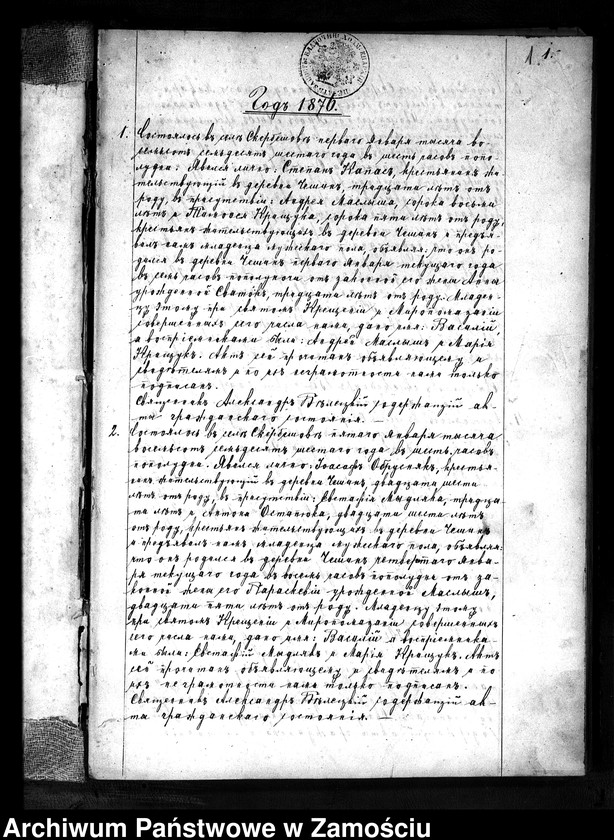 1 1.
Годъ 1876.
1. Состоялось въ селѣ Скербешовѣ перваго Января тысяча во-
семьсотъ семьдесятъ шестаго года въ шесть часовъ попо-
лудни: Явился лично: Степанъ Капась, крестьянинъ жи-
тельствующій въ деревни Чешинъ, тридцати лѣтъ отъ
роду, въ присутствіи: Андрея Маслыша, сорока восьми
лѣтъ и Тимоѳея Кращука, сорока пяти лѣтъ отъ роду,
крестьянъ жительствующихъ въ деревни Чешинъ и предъя-
вилъ намъ младенца мужескаго пола, объявляя: что онъ ро-
дился въ деревни Чешинъ перваго Января текущаго года
въ семь часовъ пополуночи отъ законной его жены Анны
урожденной Сватокъ, тридцати лѣтъ отъ роду. Младен-
цу этому при святомъ Крещеніи и Миропомазаніи
совершенныхъ сего числа нами, дано имя: Василій,
а воспріемниками были: Андрей Маслышъ и Марія
Кращукъ. Актъ сей прочитанъ объявляющему и
свидѣтелямъ и по ихъ неграмотности нами только
подписанъ.
Священникъ Александръ Бѣлецкій содержащій ак-
ты гражданскаго состоянія. —
2. Состоялось въ селѣ Скербешовѣ пятаго Января тысяча
восемьсотъ семьдесятъ шестаго года въ шесть часовъ
пополудни. Явился лично: Іоасафъ Обруснякъ, крестья-
нинъ жительствующій въ деревни Чешинъ, двадцати шести
лѣтъ отъ роду, въ присутствіи: Евстафія Мыдляка, тридца-
ти лѣтъ и Антона Останюка, двадцати шести лѣтъ
отъ роду, крестьянъ жительствующихъ въ деревни Чешинъ
и предъявилъ намъ младенца мужескаго пола, объявляя:
что онъ родился въ деревни Чешинъ четвертаго Янва-
ря текущаго года въ восемь часовъ пополудни отъ за-
конной жены его Параскевіи урожденной Маслышъ,
двадцати пяти лѣтъ отъ роду. Младенцу этому
при святомъ Крещеніи и Миропомазаніи совершенныхъ
сего числа нами, дано имя: Василій а воспріемника-
ми были: Евстафій Мыдлякъ и Марія Кращукъ. Актъ
сей прочитанъ объявляющему и свидѣтелямъ и по
ихъ неграмотности нами только подписанъ.
Священникъ Александръ Бѣлецкій содержащій ак-
ты гражданскаго состоянія. —
Archiwum Państwowe w Zamościu